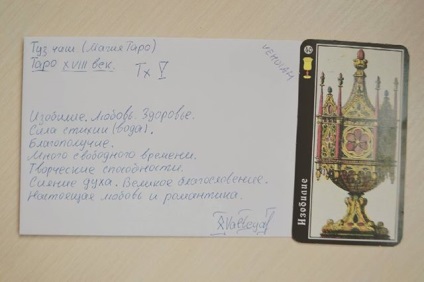 Туз чаш (Магия Таро)
Таро XVIII век.
Тх V
Изобилие. Любовь. Здоровье.
Сила стихии (вода).
Благополучие.
Много свободного времени.
Творческие способности.
Сияние духа. Великое благословение.
Настоящая любовь и романтика.
Изобилие